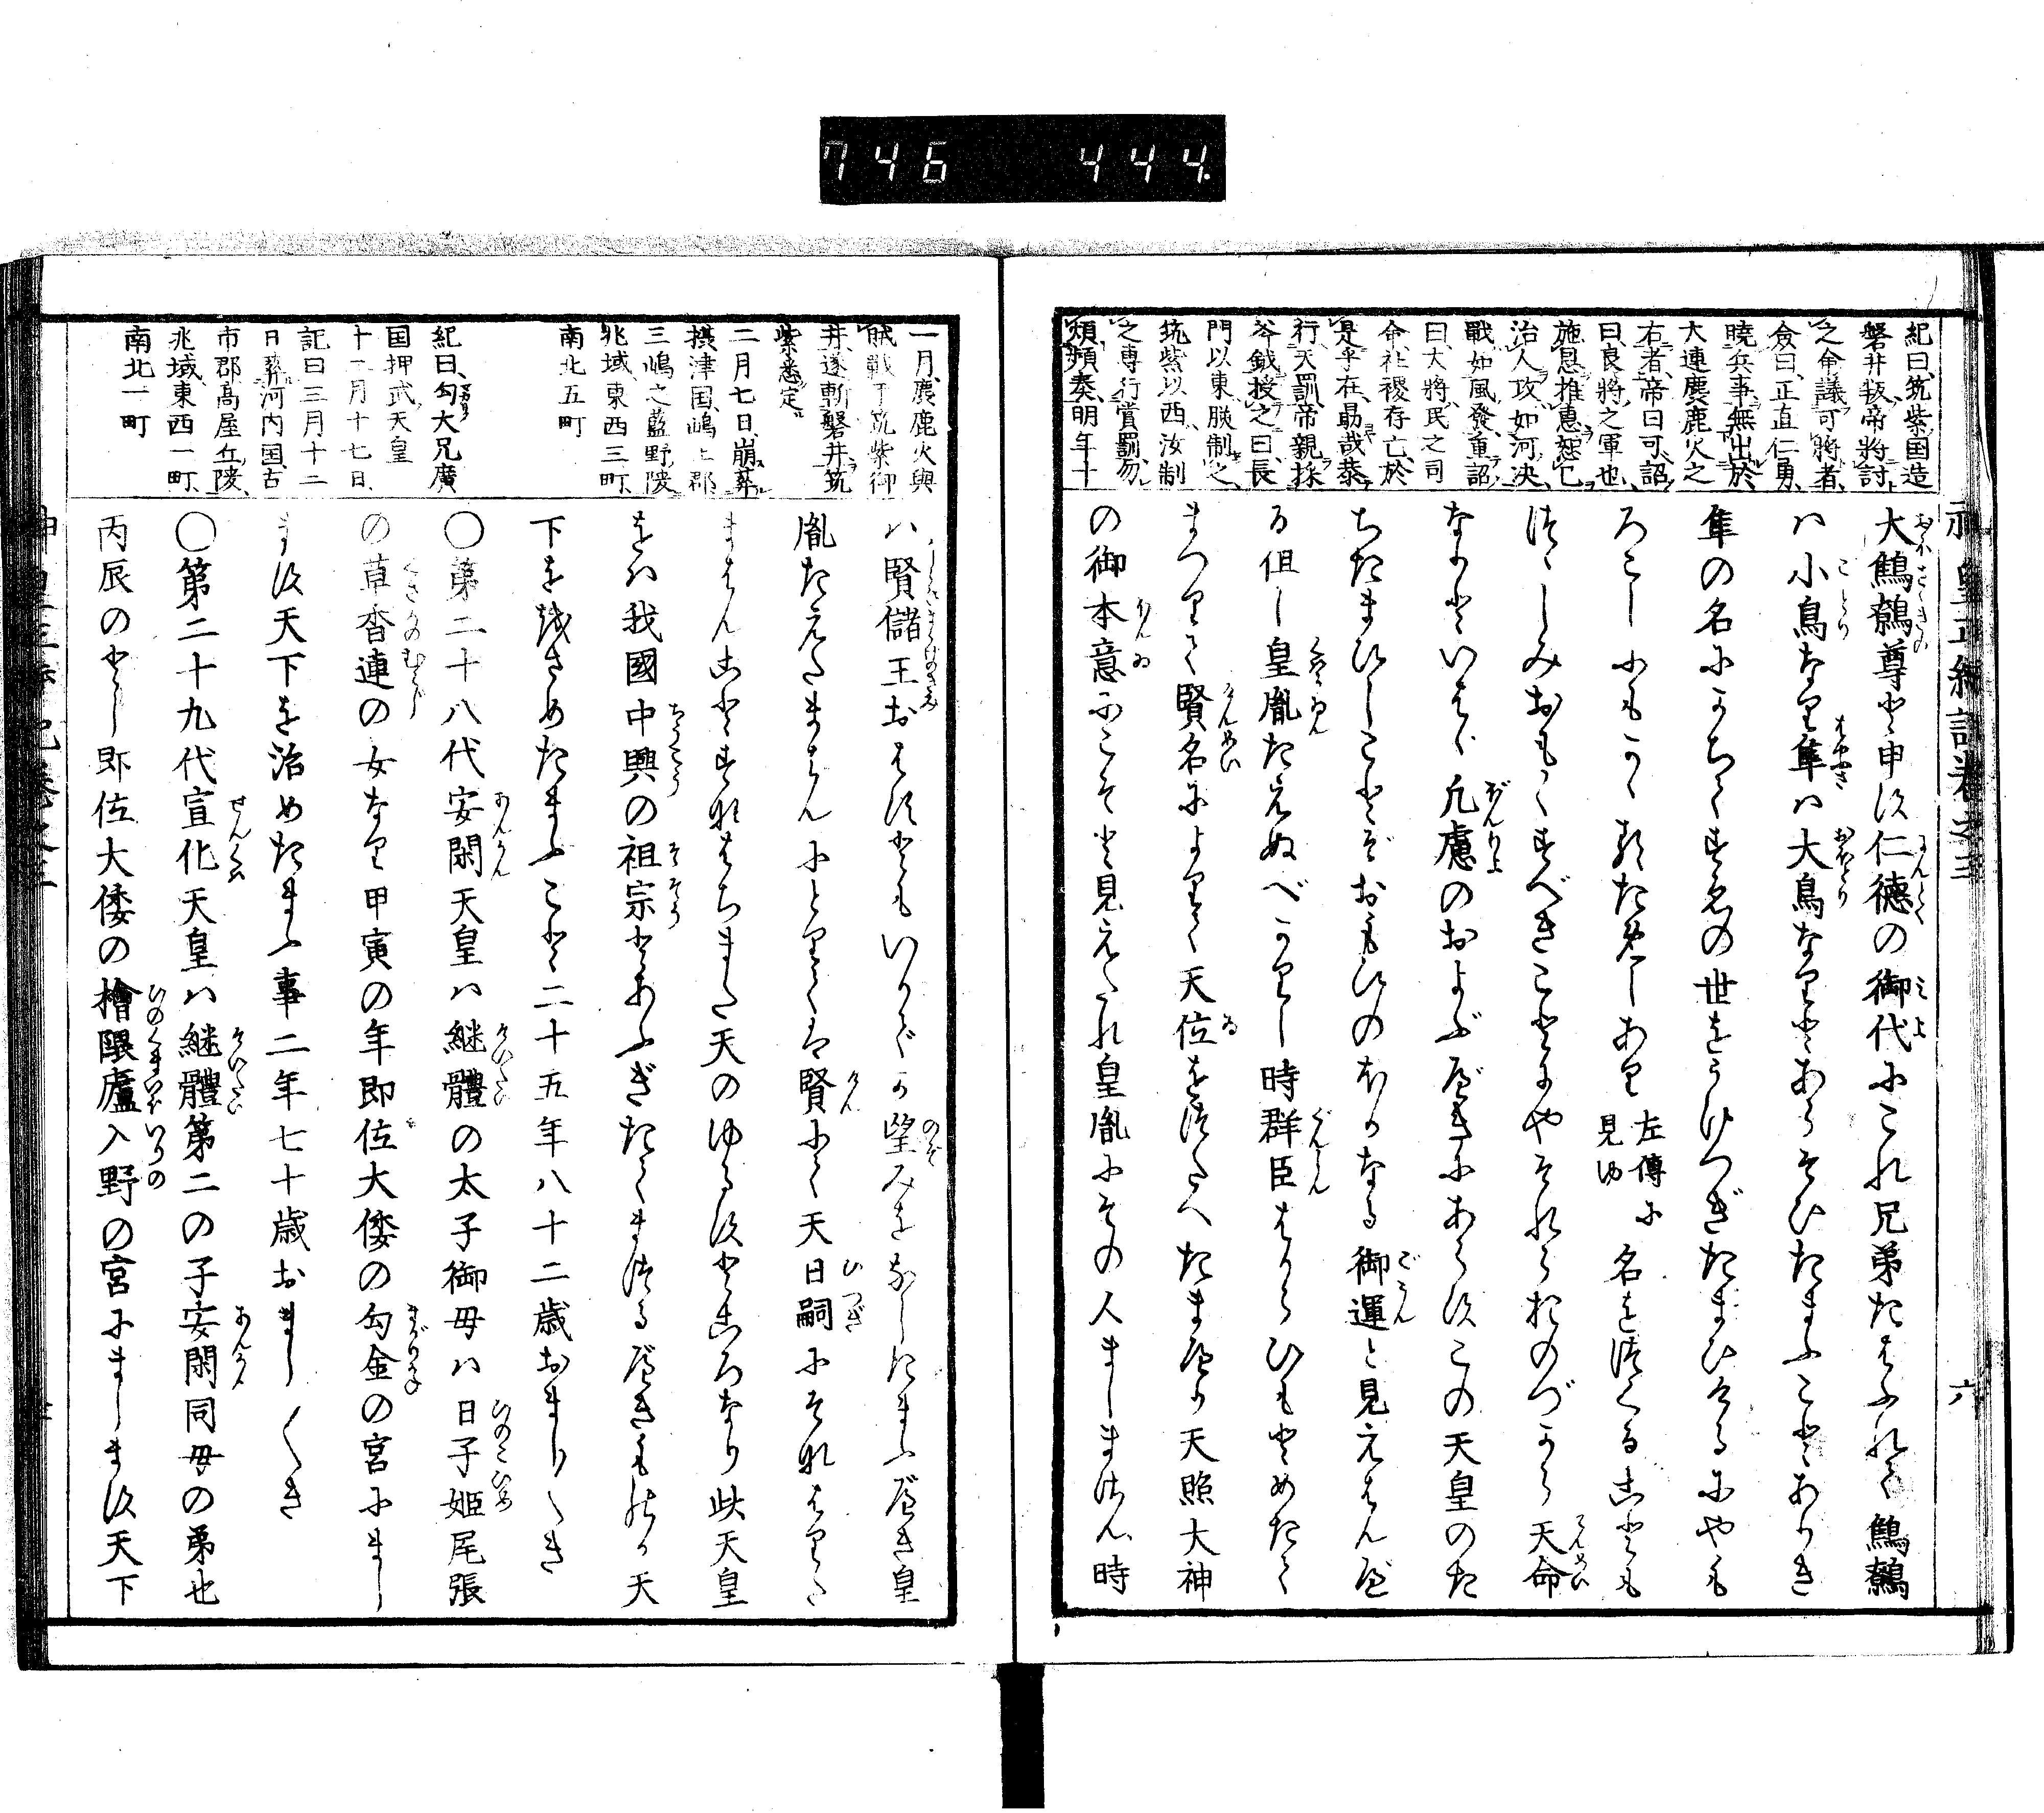 746 444.
神皇正統記巻之三 六
紀曰筑紫国造
磐井叛帝將討
之命議可將者
僉曰正直仁勇
曉兵事無出於
大連麁鹿火之
右者帝曰可詔
曰良將之軍也
施恩推惠恕己
治人攻如河決
戰如風發重詔
曰大將民之司
命社稷存亡於
是乎在勗哉恭
行天罰帝親採
斧鉞授之曰長
門以東朕制之
筑紫以西汝制
之専行賞罰勿
煩頻奏明年十
大鷦鷯尊と申す仁德の御代にこれ兄弟たはふれて鷦鷯
ハ小鳥なり隼ハ大鳥なりとあらそひたまふことありき
隼の名にかちてすゑの世をうけつぎたまひけるにやも
ろこしにもかゝるためしあり左傳に見ゆ名をつくることも
つゝしみおもくすべきことにやそれもおのづから天命
なりといはゞ凡慮のおよぶべきにあらずこの天皇のた
ちたまひしことぞおもひのほかなる御運と見えはんべ
る但し皇胤たえぬべかりし時群臣はからひもとめたて
まつりて賢名によりて天位をつたへたまへり天照大神
の御本意にこそと見えたれ皇胤にその人ましまさん時
一月麁鹿火與
賊戰于筑紫御
井遂斬磐井筑
紫悉定
二月七日崩葬
摂津国嶋上郡
三嶋之藍野陵
兆域東西三町
南北五町
紀曰勾大兄廣
国押武天皇
十二月十七日
記曰三月十二
日葬河内国古
市郡高屋丘陵
兆域東西一町
南北一町
ハ賢儲王おはすともいかでか望みをなしたまふべき皇
胤たえたまはんにとりては賢にて天日嗣にそなはりた
まはんことすなはちまた天のゆるすところなり此天皇
をハ我國中興の祖宗とあふぎたてまつるべきものか天
下を玫さめたまふこと二十五年八十二歳おましゝき
〇第二十八代安閑天皇ハ継體の太子御母ハ日子姫尾張
の草香連の女なり甲寅の年即位大倭の勾金の宮にまし
ます天下を治めたまふ事二年七十歳おまし〱き
〇第二十九代宣化天皇ハ継體第二の子安閑同母の弟也
丙辰のとし即位大倭の檜隈廬入野の宮にまします天下